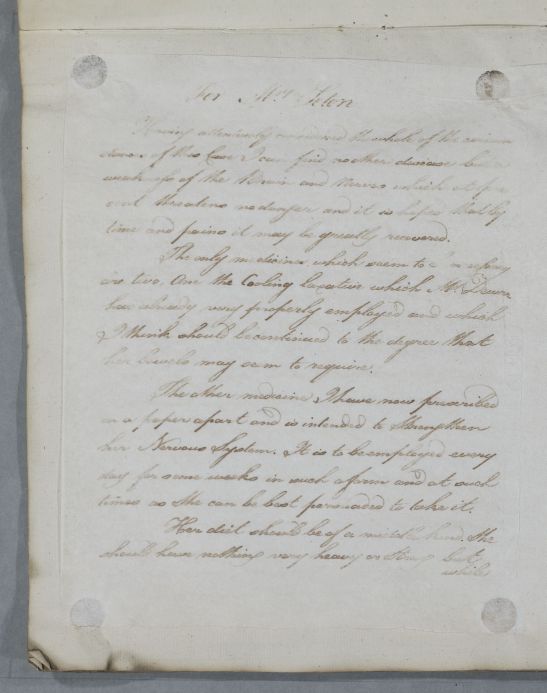 For Mrs
Having attentively considered the whole of the circum
stances of this Case I can find no other disease but a
weakness of the Brain and Nerves which at pre
sent threatens no danger and it is hoped that by
time and pains it may be greatly recovered.
The only medicines which seem to be necessary
are two, One the Cooling Laxative which Mr.
has already very properly employed and which
I think should be continued to the degree that
her bowels may seem to require.
The other medicine I have now prescribed
on a paper apart and is intended to Strengthen
her Nervous System. It is to be employed every
day for some weeks in such a form and at such
times as she can be best persuaded to take it.
Her diet should be of a middle kind. She
should have nothing very heavy or Strong but
while